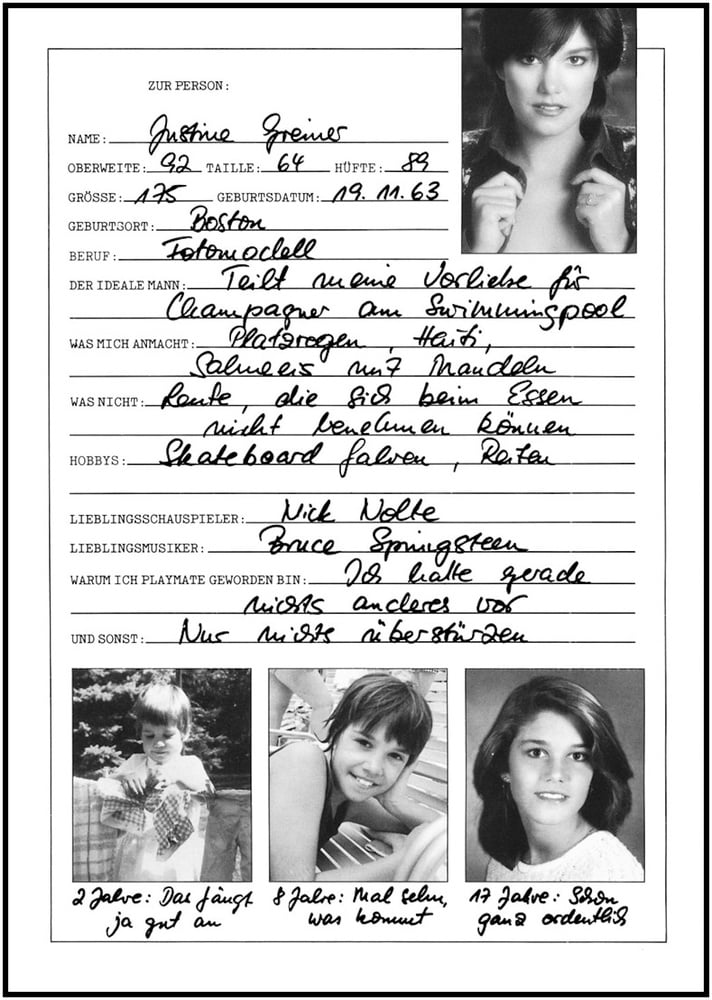 ZUR PERSON:
NAME: Justine Greiner
OBERWEITE: 92 TAILLE: 64 HÜFTE: 89
GRÖSSE: 175 GEBURTSDATUM: 19. 11. 63
GEBURTSORT: Boston
BERUF: Fotomodell
DER IDEALE MANN: Teilt meine Vorliebe für
Champagner am Swimmingpool
WAS MICH ANMACHT: Platzregen, Haiti,
Sahneeis mit Mandeln
WAS NICHT: Leute, die sich beim Essen
nicht benehmen können
HOBBYS: Skateboard fahren, Reiten
LIEBLINGSSCHAUSPIELER: Nick Nolte
LIEBLINGSMUSIKER: Bruce Springsteen
WARUM ICH PLAYMATE GEWORDEN BIN: Ich hatte gerade
nichts anderes vor
UND SONST: Nur nichts überstürzen
2 Jahre: Das fängt
ja gut an
8 Jahre: Mal sehn,
was kommt
17 Jahre: Schon
ganz ordentlich